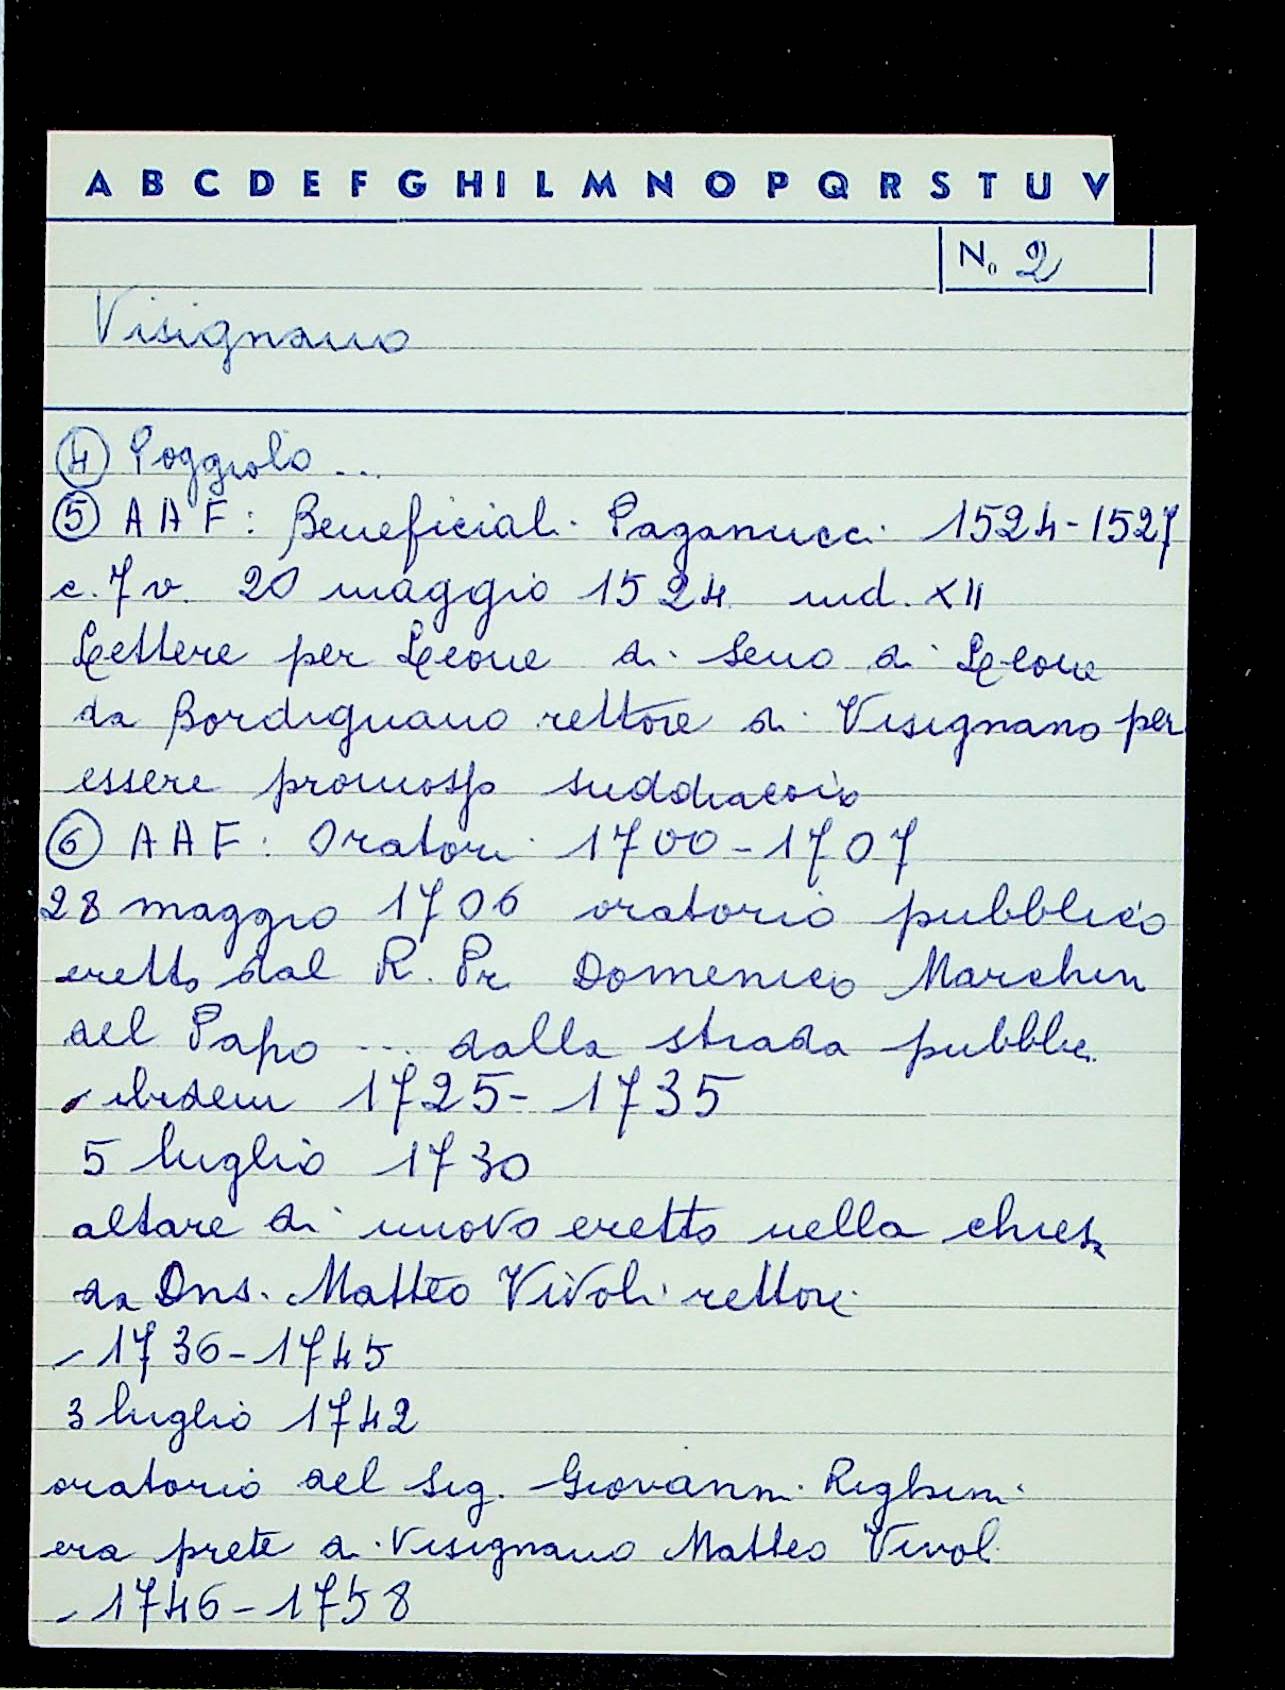 A B C D E F G H I L M N O P Q R S T U V
N. 2
Visignano
4 Poggiolo ...
5 A A F: Beneficiali Paganucci 1524-1527
c. 7 v. 20 maggio 1524 ind. XII
Lettere per Leone di Seno di Leone
da Bordignano rettore di Visignano per
essere promosso suddiacono
6 A A F: Oratori 1700-1707
28 maggio 1706 oratorio pubblico
eretto dal R. Pr. Domenico Marchini
del Papo ... dalla strada pubblic.
- ibidem 1725-1735
5 luglio 1730
altare di nuovo eretto nella chiesa
da Dns. Matteo Vivoli rettore
- 1736-1745
3 luglio 1742
oratorio del Sig. Giovanni Righini
era prete a Visignano Matteo Vivoli
- 1746-1758